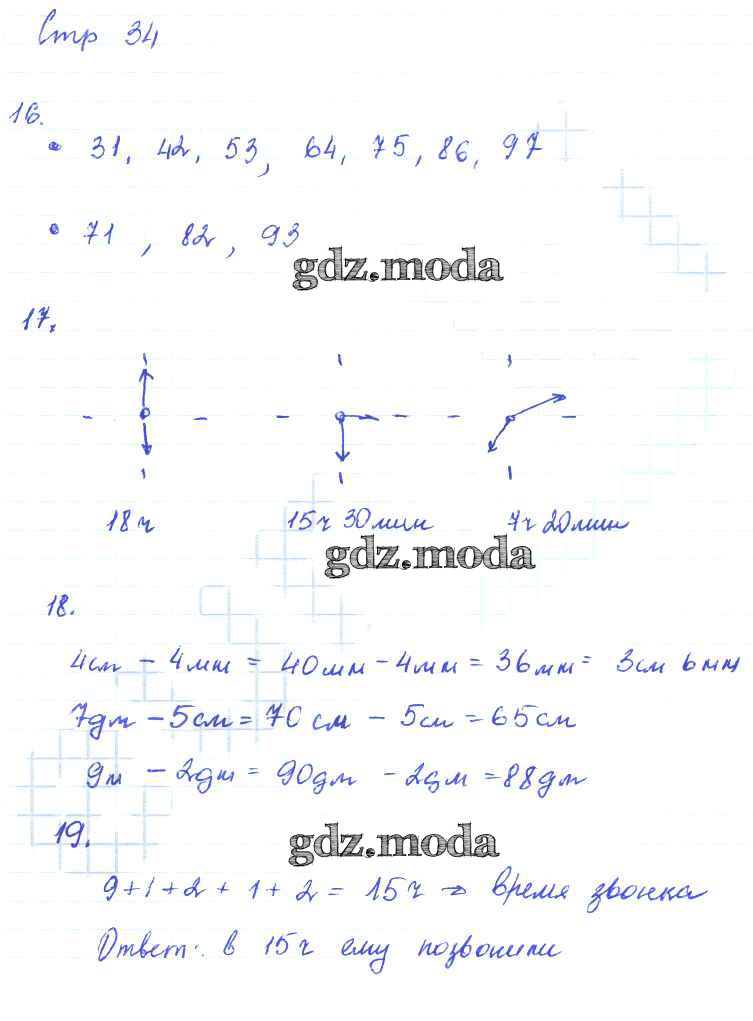 Стр 34
16.
• 31, 42, 53, 64, 75, 86, 97
• 71, 82, 93
gdz.moda
17.
18ч 15ч 30мин 7ч 20мин
gdz.moda
18.
4см - 4мм = 40мм - 4мм = 36мм = 3см 6мм
7дм - 5см = 70см - 5см = 65см
9м - 2дм = 90дм - 2дм = 88дм
19.
gdz.moda
9+1+2+1+2 = 15ч → время звонка
Ответ: в 15ч ему позвонили